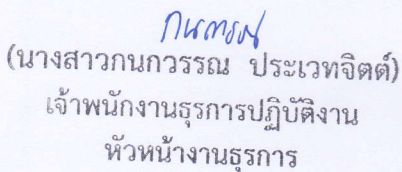 กนกวรรณ
(นางสาวกนกวรรณ ประเวทจิตต์)
เจ้าพนักงานธุรการปฏิบัติงาน
หัวหน้างานธุรการ